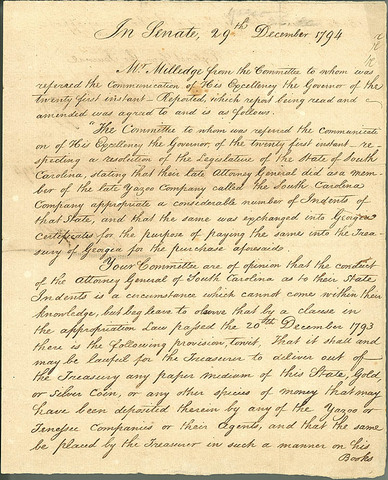 In Senate, 29th December 1794
Mr. Milledge from the Committee to whom was
referred the Communication of His Excellency the Governor of the
twenty first instant – Reported, which report being read and
amended was agreed to and is as follows.
"The Committee to whom was referred the communicate
on of His Excellency the Governor, of the twenty first instant – re-
specting a resolution of the Legislature of the State of South
Carolina, stating that their late Attorney General did as a mem
ber of the late Yazoo Company called the South Carolina
Company appropriate a considerable number of Indents of
that State, and that the same was exchanged into Georgia
certificates for the purpose of paying the same into the Trea-
sury of Georgia for the purchase aforesaid.
Your Committee are of opinion that the conduct
of the Attorney General of South Carolina as to their State
Indents is a circumstance which cannot come within their
knowledge, but beg leave to observe that by a clause in
the appropriation Law passed the 20th December 1793
there is the following provision, towit, That it shall and
may be lawful for the Treasurer to deliver out of
the Treasury any paper medium of this State, Gold
or Silver Coin, or any other species of money that may
have been deposited therein by any of the Yazoo or
Tenessee Companies or their Agents, and that the same
be placed by the Treasurer in such a manner on his
Books